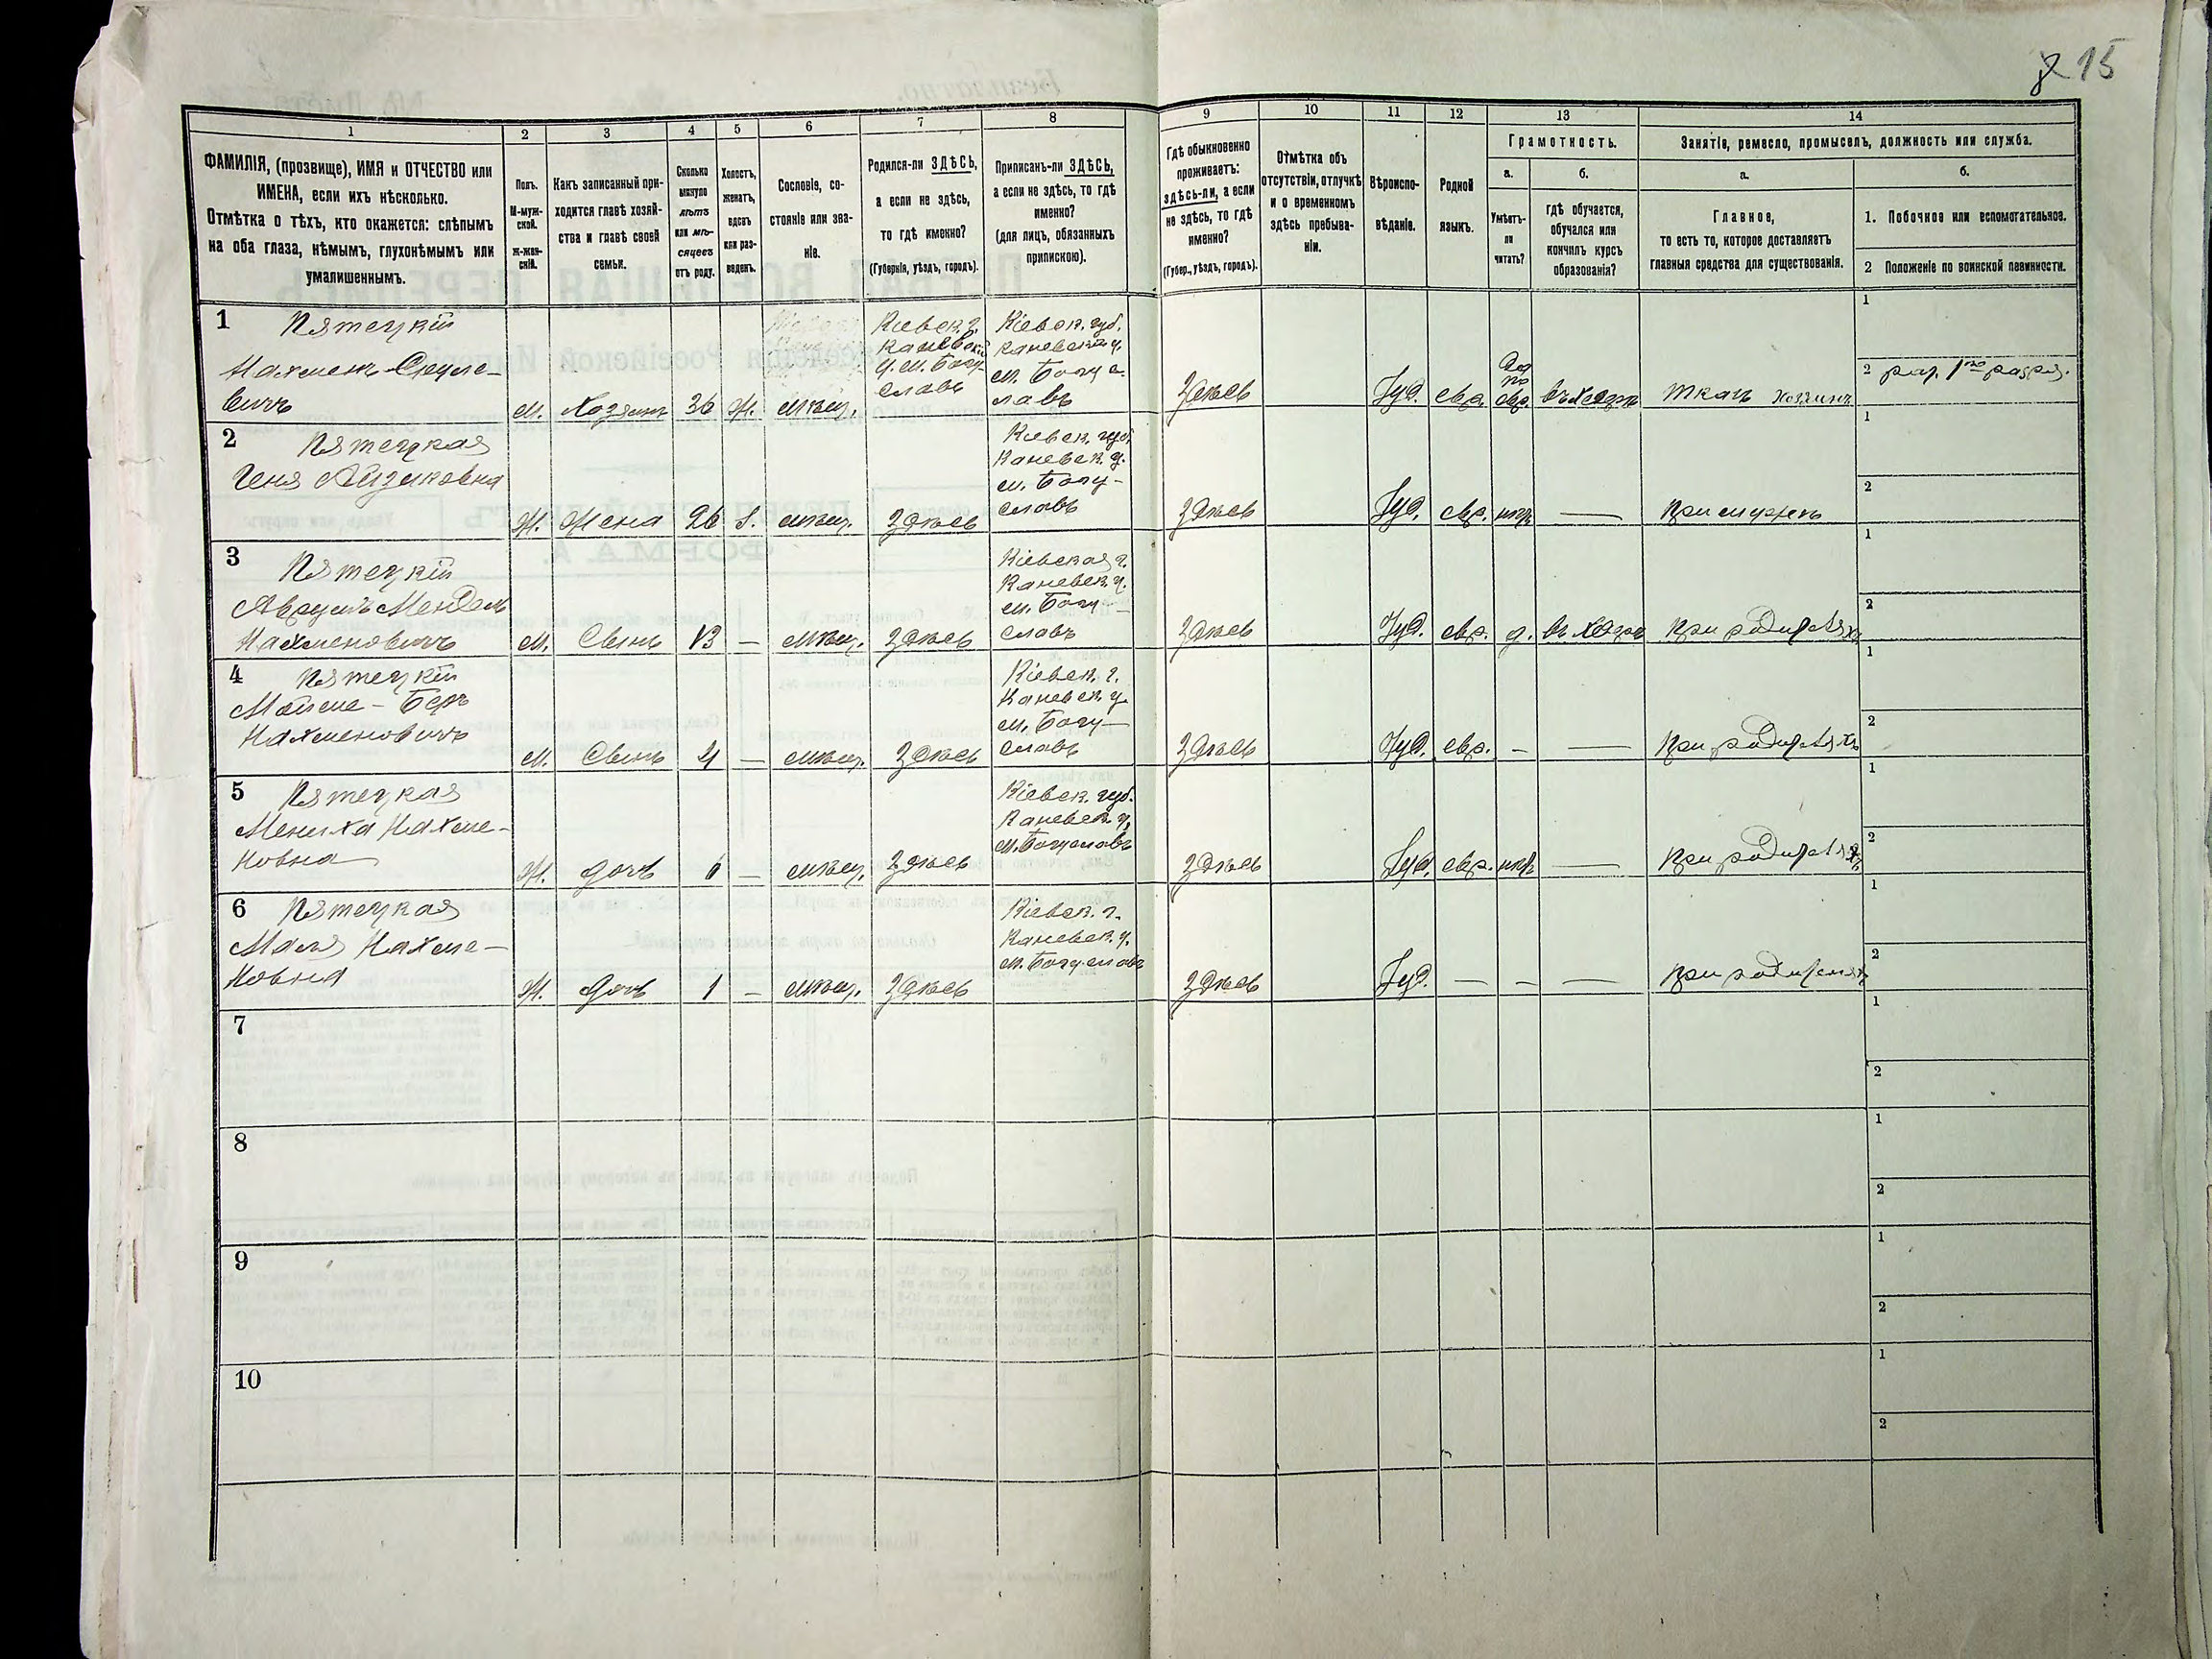 15
1
2
3
4
5
6
7
8
9
10
11
12
13
14
ФАМИЛІЯ, (прозвище), ИМЯ и ОТЧЕСТВО или
ИМЕНА, если ихъ нѣсколько.
Отмѣтка о тѣхъ, кто окажется: слѣпымъ
на оба глаза, нѣмымъ, глухонѣмымъ или
умалишеннымъ.
Полъ.
М-муж-
ской.
Ж-жен-
скій.
Какъ записанный при-
ходится главѣ хозяй-
ства и главѣ своей
семьи.
Сколько
минуло
лѣтъ
или мѣ-
сяцевъ
отъ роду.
Холостъ,
женатъ,
вдовъ
или раз-
веденъ.
Сословіе, со-
стояніе или зва-
ніе.
Родился-ли ЗДѢСЬ,
а если не здѣсь,
то гдѣ именно?
(Губернія, уѣздъ, городъ).
Приписанъ-ли ЗДѢСЬ,
а если не здѣсь, то гдѣ
именно?
(для лицъ, обязанныхъ
припискою).
Гдѣ обыкновенно
проживаетъ:
здѣсь-ли, а если
не здѣсь, то гдѣ
именно?
(Губер., уѣздъ, городъ).
Отмѣтка объ
отсутствіи, отлучкѣ
и о временномъ
здѣсь пребыва-
ніи.
Вѣроиспо-
вѣданіе.
Родной
языкъ.
Грамотность.
а.
Умѣетъ-
ли
читать?
б.
гдѣ обучается,
обучался или
кончилъ курсъ
образованія?
Занятіе, ремесло, промыселъ, должность или служба.
а.
Главное,
то есть то, которое доставляетъ
главныя средства для существованія.
б.
1. Побочное или вспомогательное.
2 Положеніе по воинской повинности.
1 Пятецкій
Нахменъ Сруле-
вичъ
М. Хозяинъ 36 Ж. мѣщ.
Кіевск. г.
Каневскій
у. м. Богу-
славъ
Кіевск. губ.
Каневскій у.
м. Богус-
лавъ
Здѣсь Іуд. евр.
Да
по
евр. въ хедерѣ ткачъ хозяинъ
1
2 рат. 1го разряд.
2 Пятецкая
Геня Айзиковна
Ж. Жена 26 З. мѣщ. Здѣсь
Кіевск. губ.
Каневск. у.
м. Богу-
славъ
Здѣсь Іуд. евр. нѣтъ — При мужѣ
1
2
3 Пятецкій
Аврумъ Мендель
Нахменовичъ
М. Сынъ 13 — мѣщ. Здѣсь
Кіевская г.
Каневск. у.
м. Богу-
славъ
Здѣсь Іуд. евр. д. въ хедерѣ При родителяхъ
1
2
4 Пятецкій
Мойше-Беръ
Нахменовичъ
М. Сынъ 4 — мѣщ. Здѣсь
Кіевск. г.
Каневск. у.
м. Богу-
славъ
Здѣсь Іуд. евр. - — При родителяхъ
1
2
5 Пятецкая
Мениха Нахме-
новна
Ж. дочь 6 — мѣщ. Здѣсь
Кіевск. губ.
Каневск. у.
м. Богуславъ
Здѣсь Іуд. евр. нѣтъ — При родителяхъ
1
2
6 Пятецкая
Маля Нахме-
новна
Ж. дочь 1 — мѣщ. Здѣсь
Кіевск. г.
Каневск. у.
м. Богуславъ
Здѣсь Іуд. — - — При родителяхъ
1
2
7
1
2
8
1
2
9
1
2
10
1
2